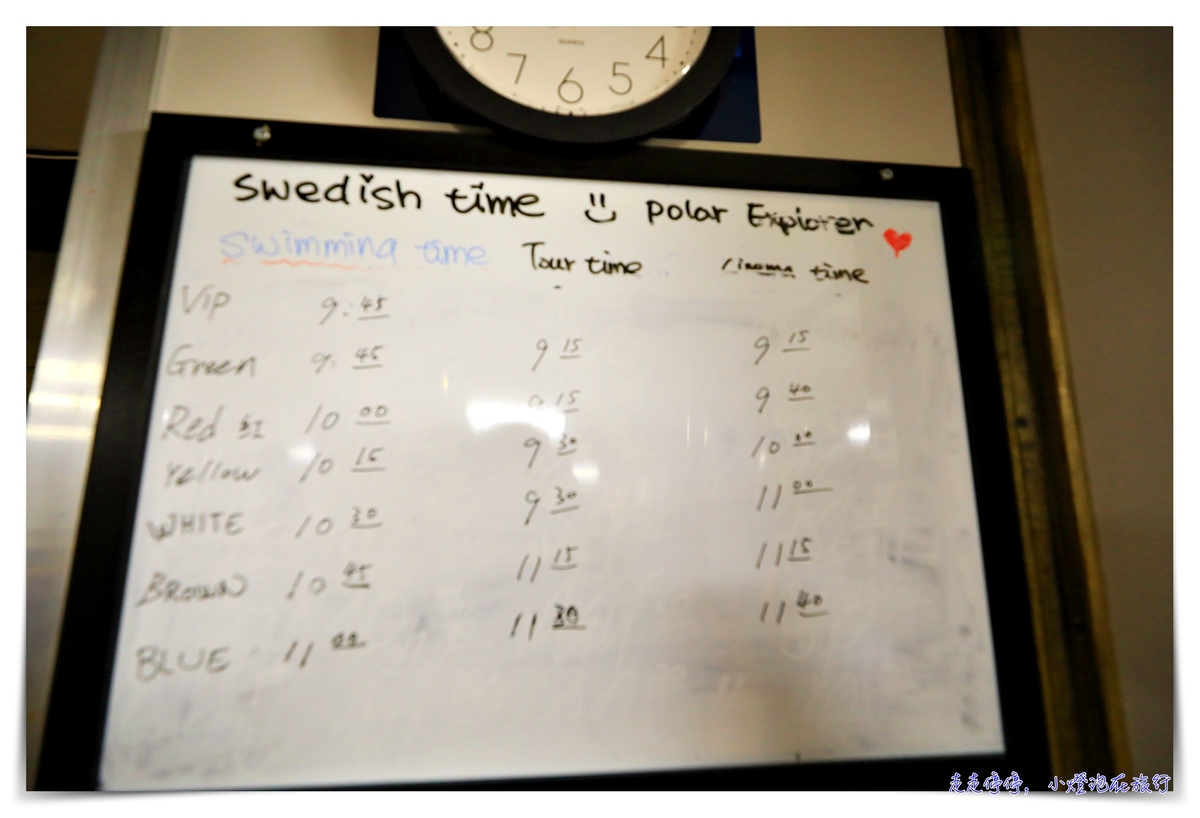 8 7 6 5 4
QUARTZ
Swedish time Polar Explorer
Swimming time Tour time time
Vip 9:45
Green 9:45 9 15 9 15
Red 紅 10 00 9 15 9 40
Yellow 10 15 9 30 10
WHITE 10 30 9 30 11 00
BROWN 10 45 11 15 11 15
BLUE 11 00 11 30 11 40
走走停停, 小燈泡在旅行